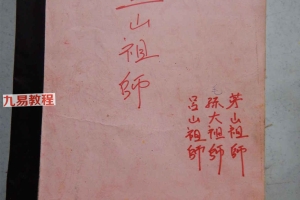 茅山祖師
茅山祖師
孫大祖師
呂山祖師
九易教程